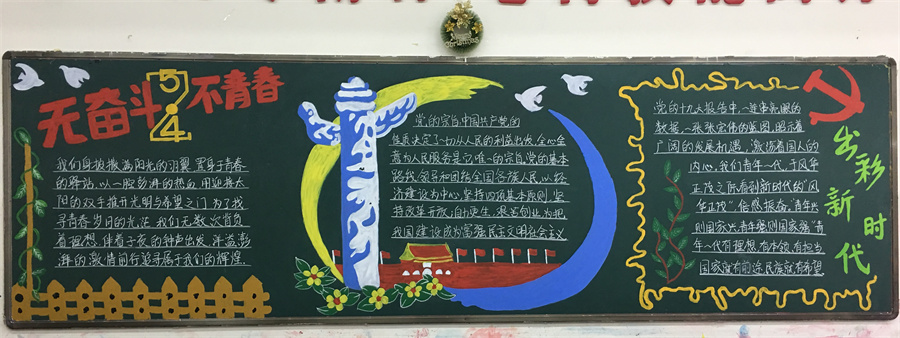 无奋斗
5
4
不青春
我们身披撒满阳光的羽翼 置身于青春
的驿站,以一腔奔沸的热血 用迎接太
阳的双手推开光明与希望之门 为了找
寻青春岁月的光芒 我们无数次背负
着理想 伴着子夜的钟声出发 洋溢澎
湃的激情前行 追寻属于我们的辉煌
党的宗旨,中国共产党的
性质决定了一切从人民的利益出发,全心全
意为人民服务是它唯一的宗旨 党的基本
路线 领导和团结全国各族人民,以经
济建设为中心 坚持四项基本原则 坚
持改革开放,自力更生 艰苦创业,为把
我国建设成为富强民主文明社会主义
党的十九大报告中,一连串亮眼的
数据,一张张宏伟的蓝图,昭示着
广阔的发展机遇,激扬着国人的
内心,我们青年一代,于风华
正茂之际看到新时代的"风
华正茂",倍感振奋,"青年兴
则国家兴,青年强则国家强"青
年一代有理想,有本领,有担当
国家就有前途,民族就有希望
出彩
新
时代